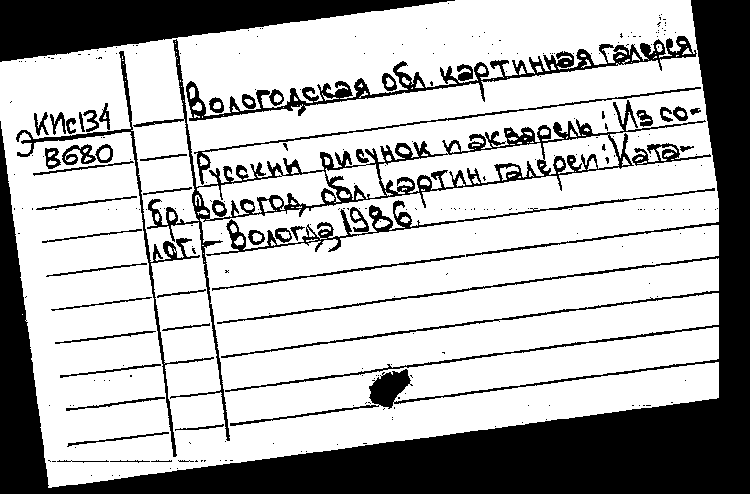 Вологодская обл. картинная галерея.
Э КПс134
В680
Русский рисунок и акварель: Из со-
бр. Вологод. обл. картин. галереи: Ката-
лог. - Вологда, 1986.